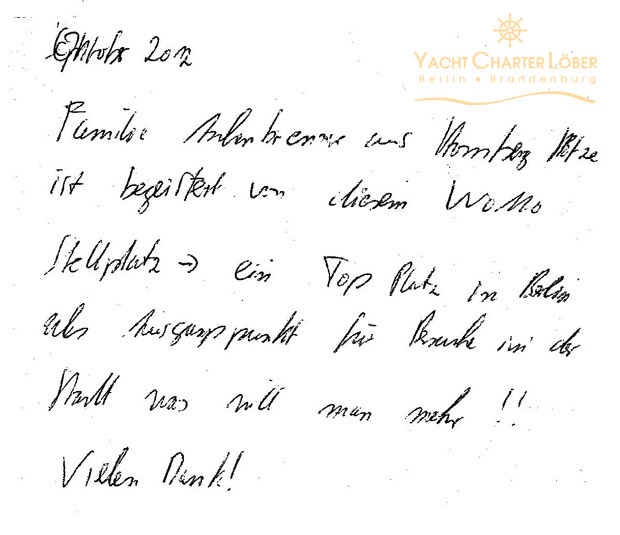 YACHT CHARTER LÖBER
Berlin • Brandenburg
Oktober 2012
Familie aus Homberg
ist begeistert von diesem WoMo
Stellplatz → ein Top Platz in Berlin
als Ausgangspunkt für Besuche in der
Stadt was will man mehr !!
Vielen Dank!